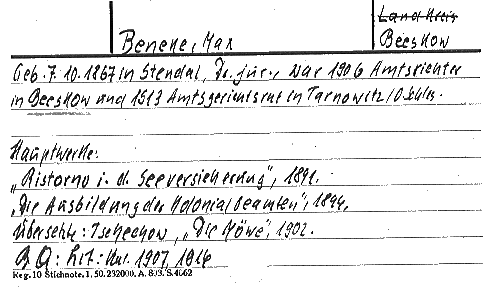 Land Kreis
Beneke, Max
Beeskow
Geb. 7.10.1867 in Stendal, Dr. jur., war 1906 Amtsrichter
in Beeskow und 1913 Amtsgerichtsrat in Tarnowitz/O.Schles.
Hauptwerke:
„Ristorno i. d. Seeversicherung", 1891.
„Die Ausbildung der Kolonialbeamten", 1894.
Übersetzte: Tschechow, „Die Möwe", 1902.
Qq: Lit: Kal. 1907, 1916
Reg. 10 Stichnote. 1. 50. 232000. A. 803. S. 4662